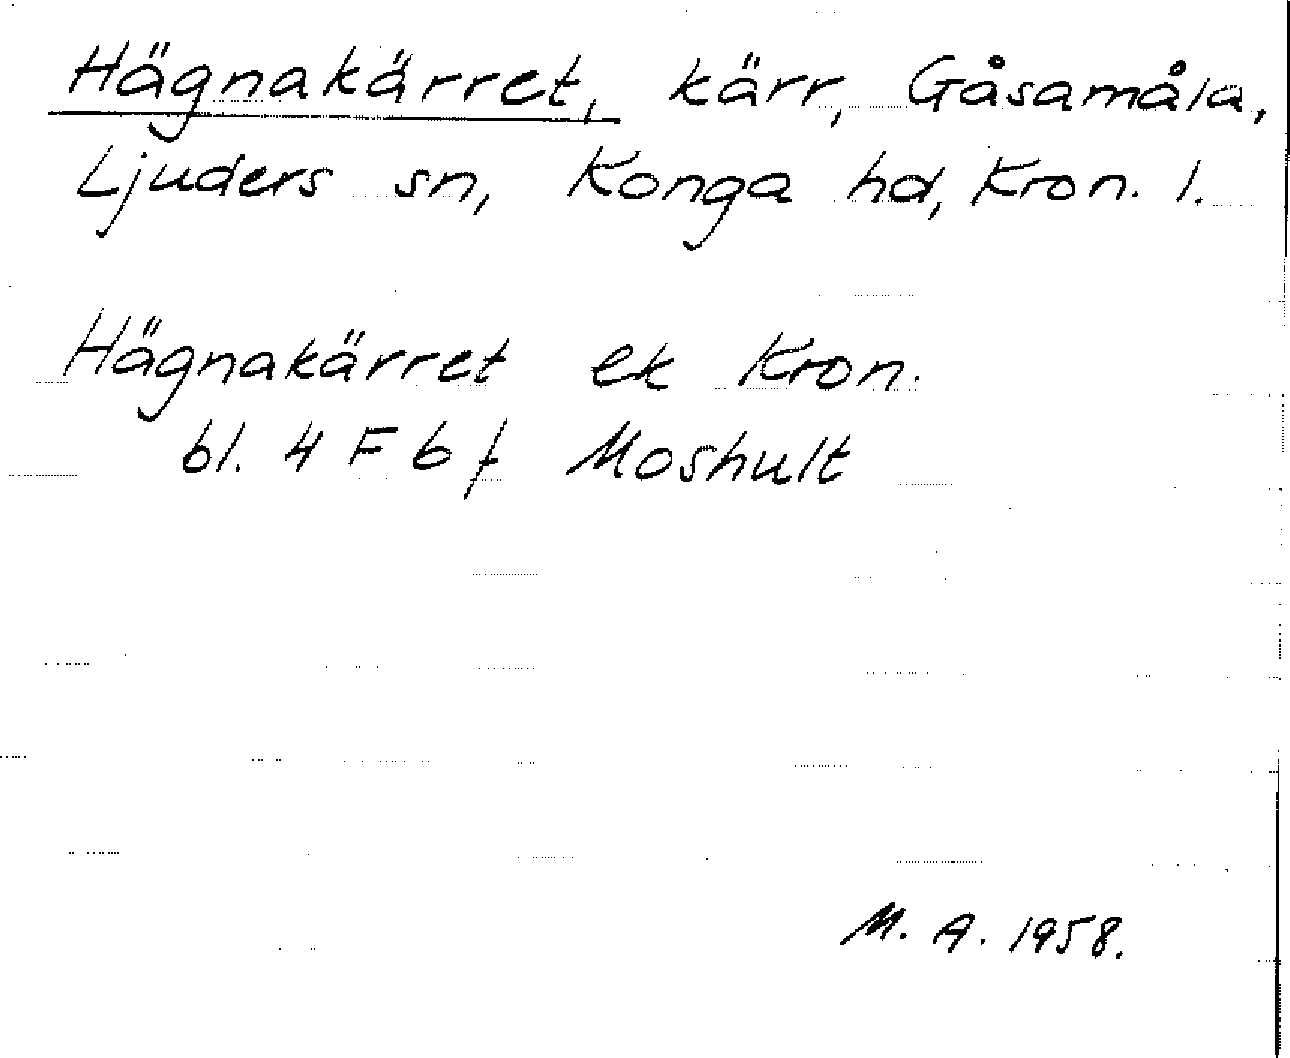 Hägnakärret, kärr, Gåsamåla,
Ljuders sn, Konga hd, Kron. l.
Hägnakärret ek Kron.
bl. 4 F 6 f Moshult
M. A. 1958.